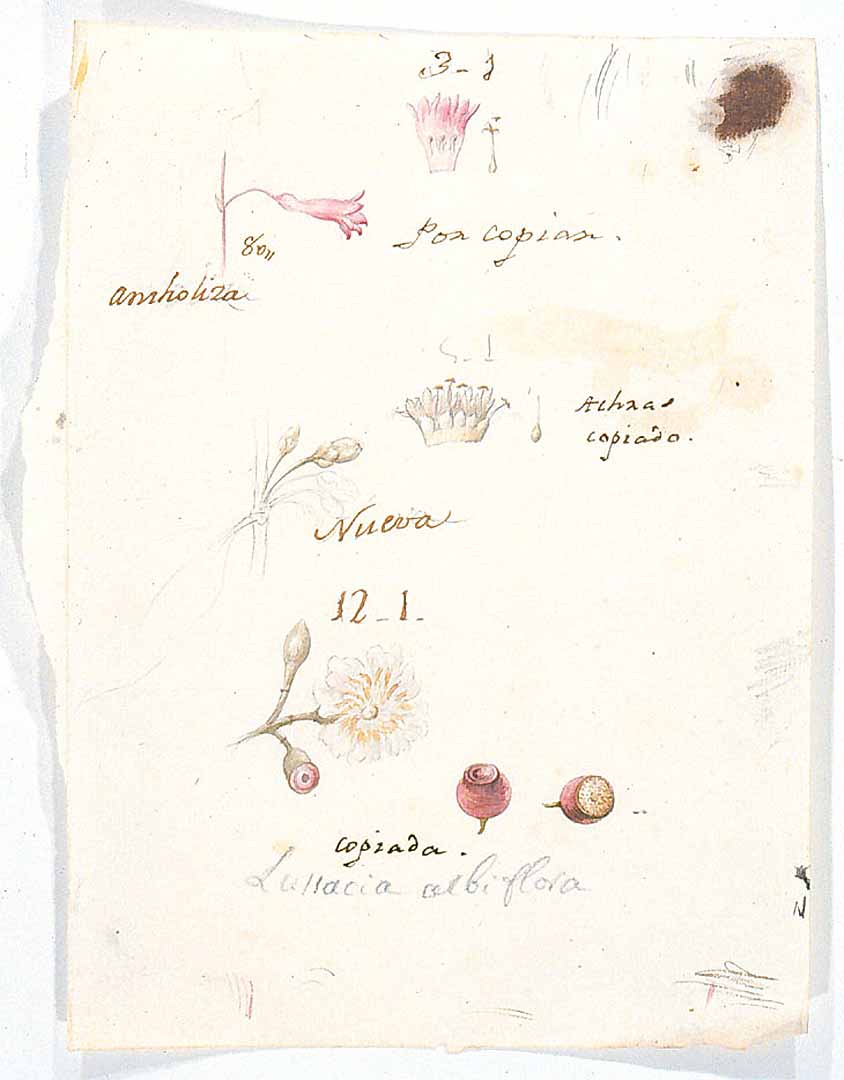 3-1
Por copiar.
antholiza
5-1
Achras
copiado.
Nueva
12-1-
copiada.
albiflora
N